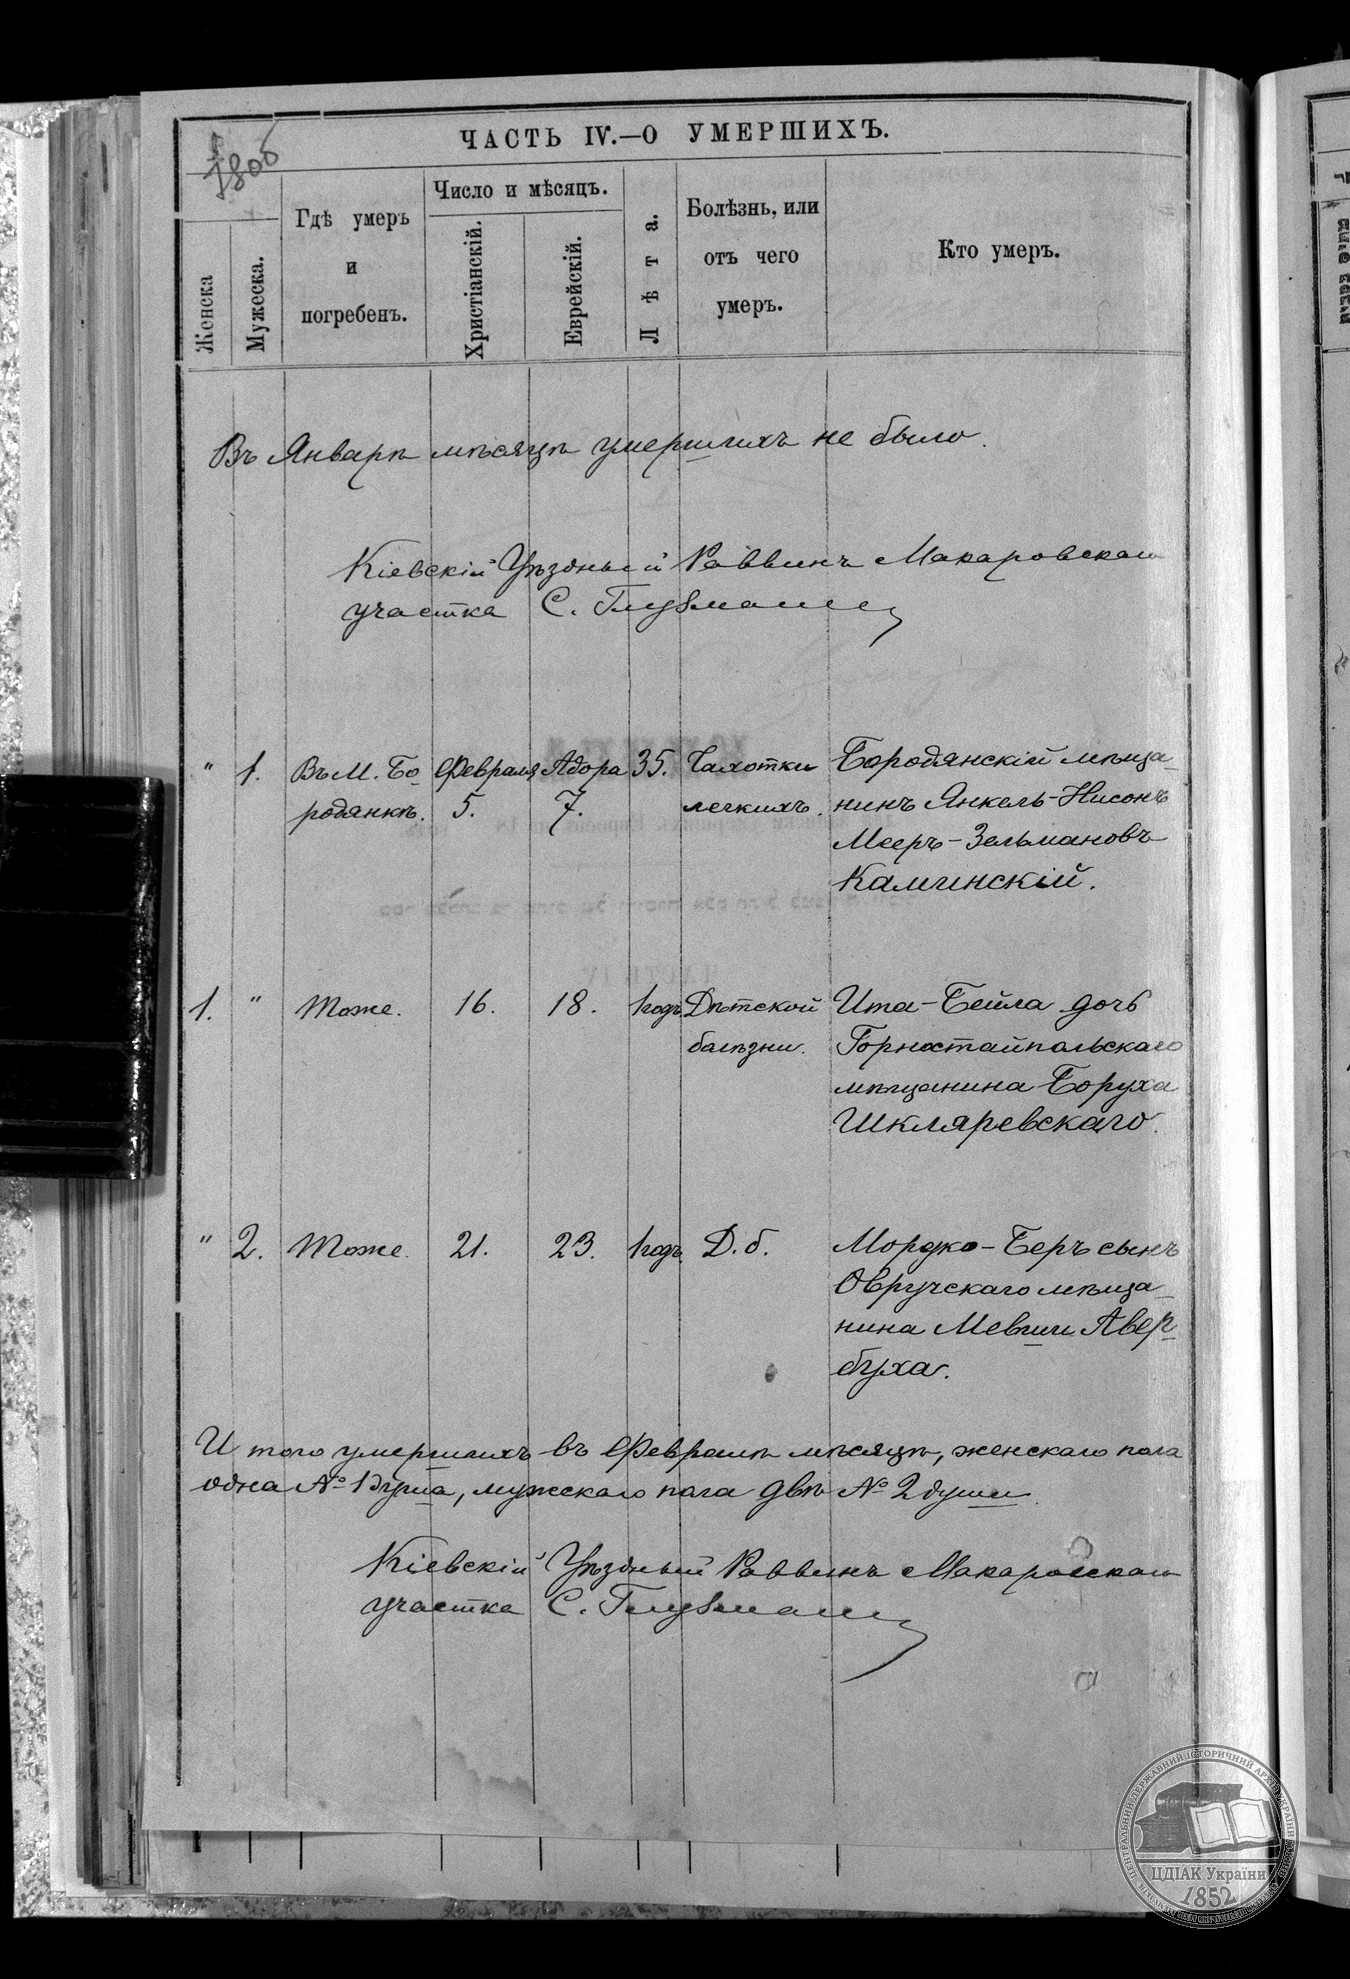 180б
ЧАСТЬ IV.—О УМЕРШИХЪ.
Женска
Мужеска.
Гдѣ умеръ
и
погребенъ.
Число и мѣсяцъ.
Христіанскій.
Еврейскій.
Лѣта.
Болѣзнь, или
отъ чего
умеръ.
Кто умеръ.
Въ Январѣ мѣсяцѣ умершихъ не было.
Кіевскій Уѣздный Раввинъ Макаровскаго
участка С. Глузманъ
" 1. Въ М. Бо- Февраля Адора 35. Чахотки Бородянскій мѣща-
родянкѣ. 5. 7. легкихъ. нинъ Янкель-Нисонъ
Мееръ-Зельмановъ
Каминскій.
1. " Тоже. 16. 18. 1 годъ Дѣтской Ита-Бейла дочь
балѣзни. Горностайпольскаго
мѣщанина Боруха
Шкляревскаго.
" 2. Тоже. 21. 23. 1 годъ. Д. б. Мордко-Беръ сынъ
Овручскаго мѣща-
нина Мевши Авер-
буха.
И того умершихъ въ Февралѣ мѣсяцѣ, женскаго пола
одна № 1 душа, мужскаго пола двѣ № 2 души.
Кіевскій Уѣздный Раввинъ Макаровскаго
участка С. Глузманъ
ЦЕНТРАЛЬНИЙ ДЕРЖАВНИЙ ІСТОРИЧНИЙ АРХІВ УКРАЇНИ
ЦДІАК України
1852